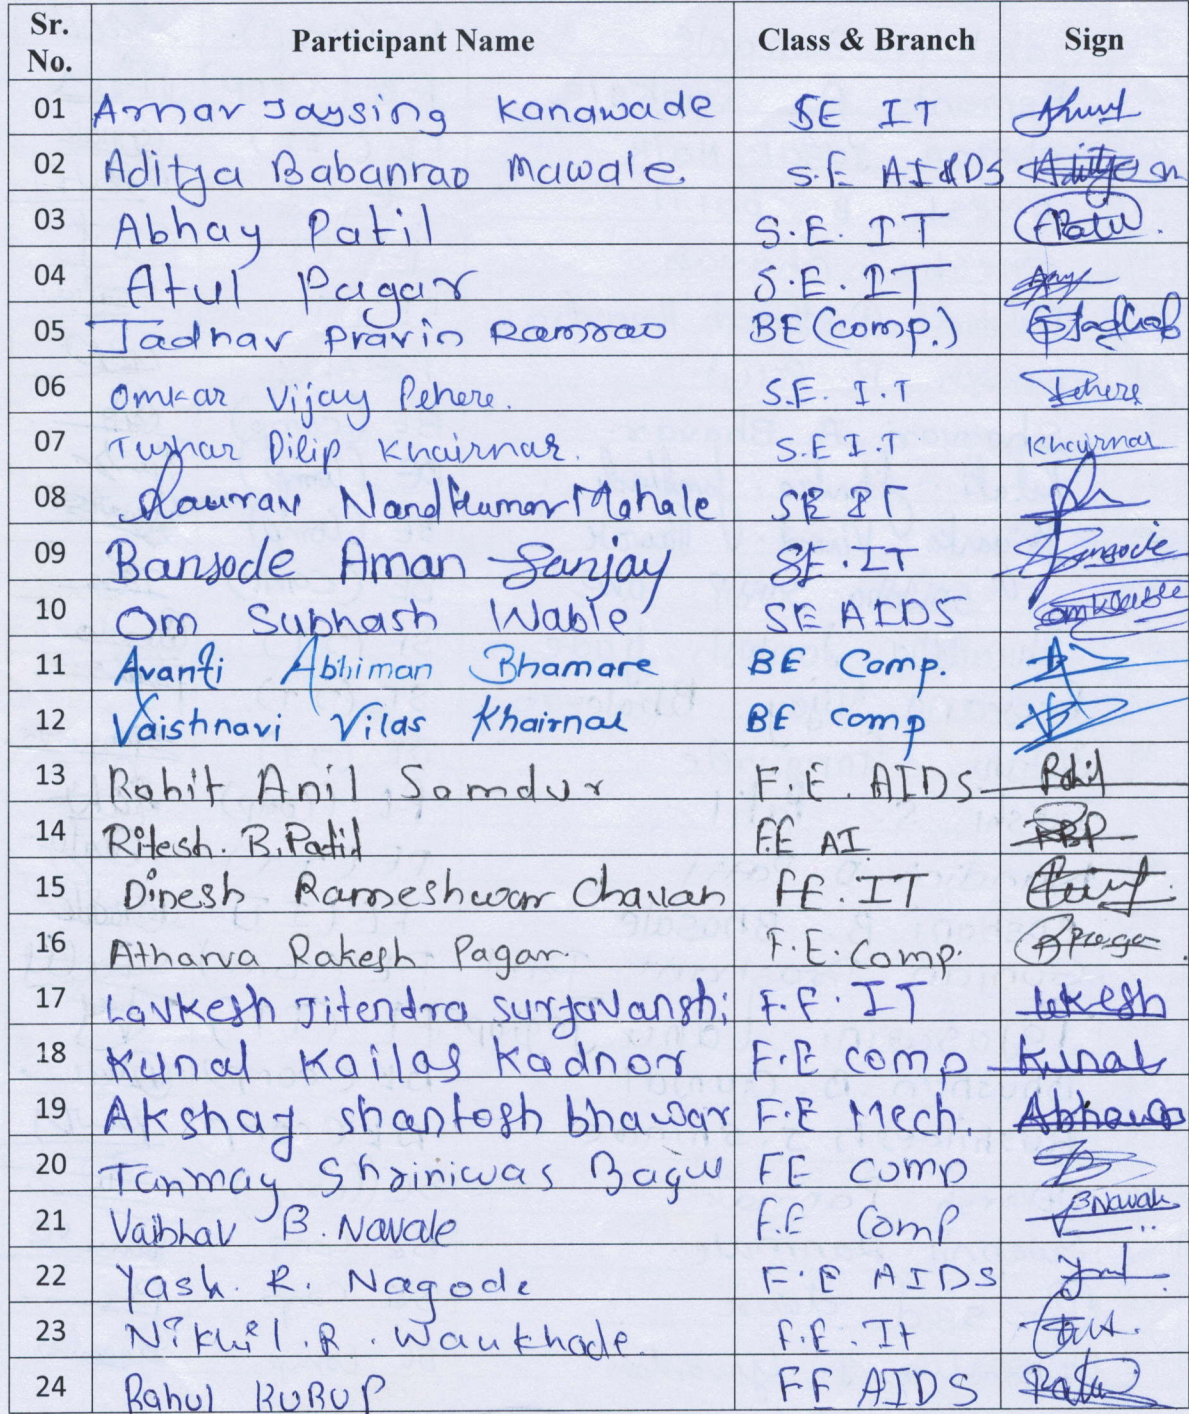 Sr. No. Participant Name Class & Branch Sign
01 Amar Jaysing Kanawade SE IT
02 Aditya Babanrao Mawale S.E AI&DS Aditya
03 Abhay Patil S.E. IT Patil
04 Atul Pagar S.E. IT
05 Jadhav Pravin Ramrao BE (Comp.) Jadhav
06 Omkar Vijay Pehere. S.E. I.T Pehere
07 Tushar Dilip Khairnar. S.E I.T Khairnar
08 Gaurav Nandkumar Mahale SE IT
09 Bansode Aman Sanjay SE.IT Bansode
10 Om Subhash Wable SE AIDS
11 Avanti Abhiman Bhamare BE Comp.
12 Vaishnavi Vilas Khairnar BE Comp
13 Rohit Anil Somdur F.E. AIDS Rohit
14 Ritesh. B. Patil F.E AI RBP
15 Dinesh Rameshwar Chavan FE.IT
16 Atharva Rakesh Pagar. F.E. Comp.
17 Lavkesh Jitendra Suryavanshi F.E. IT lokesh
18 Kunal Kailas Kadnor F.E comp Kunal
19 Akshay shantosh bhawar F.E Mech.
20 Tanmay Shriniwas Bagul FE comp
21 Vaibhav B. Navale F.E Comp BNavale
22 Yash. R. Nagode F.E AIDS
23 Nikhil.R. Waukhade. F.E. It
24 Rahul KURUP FE AIDS